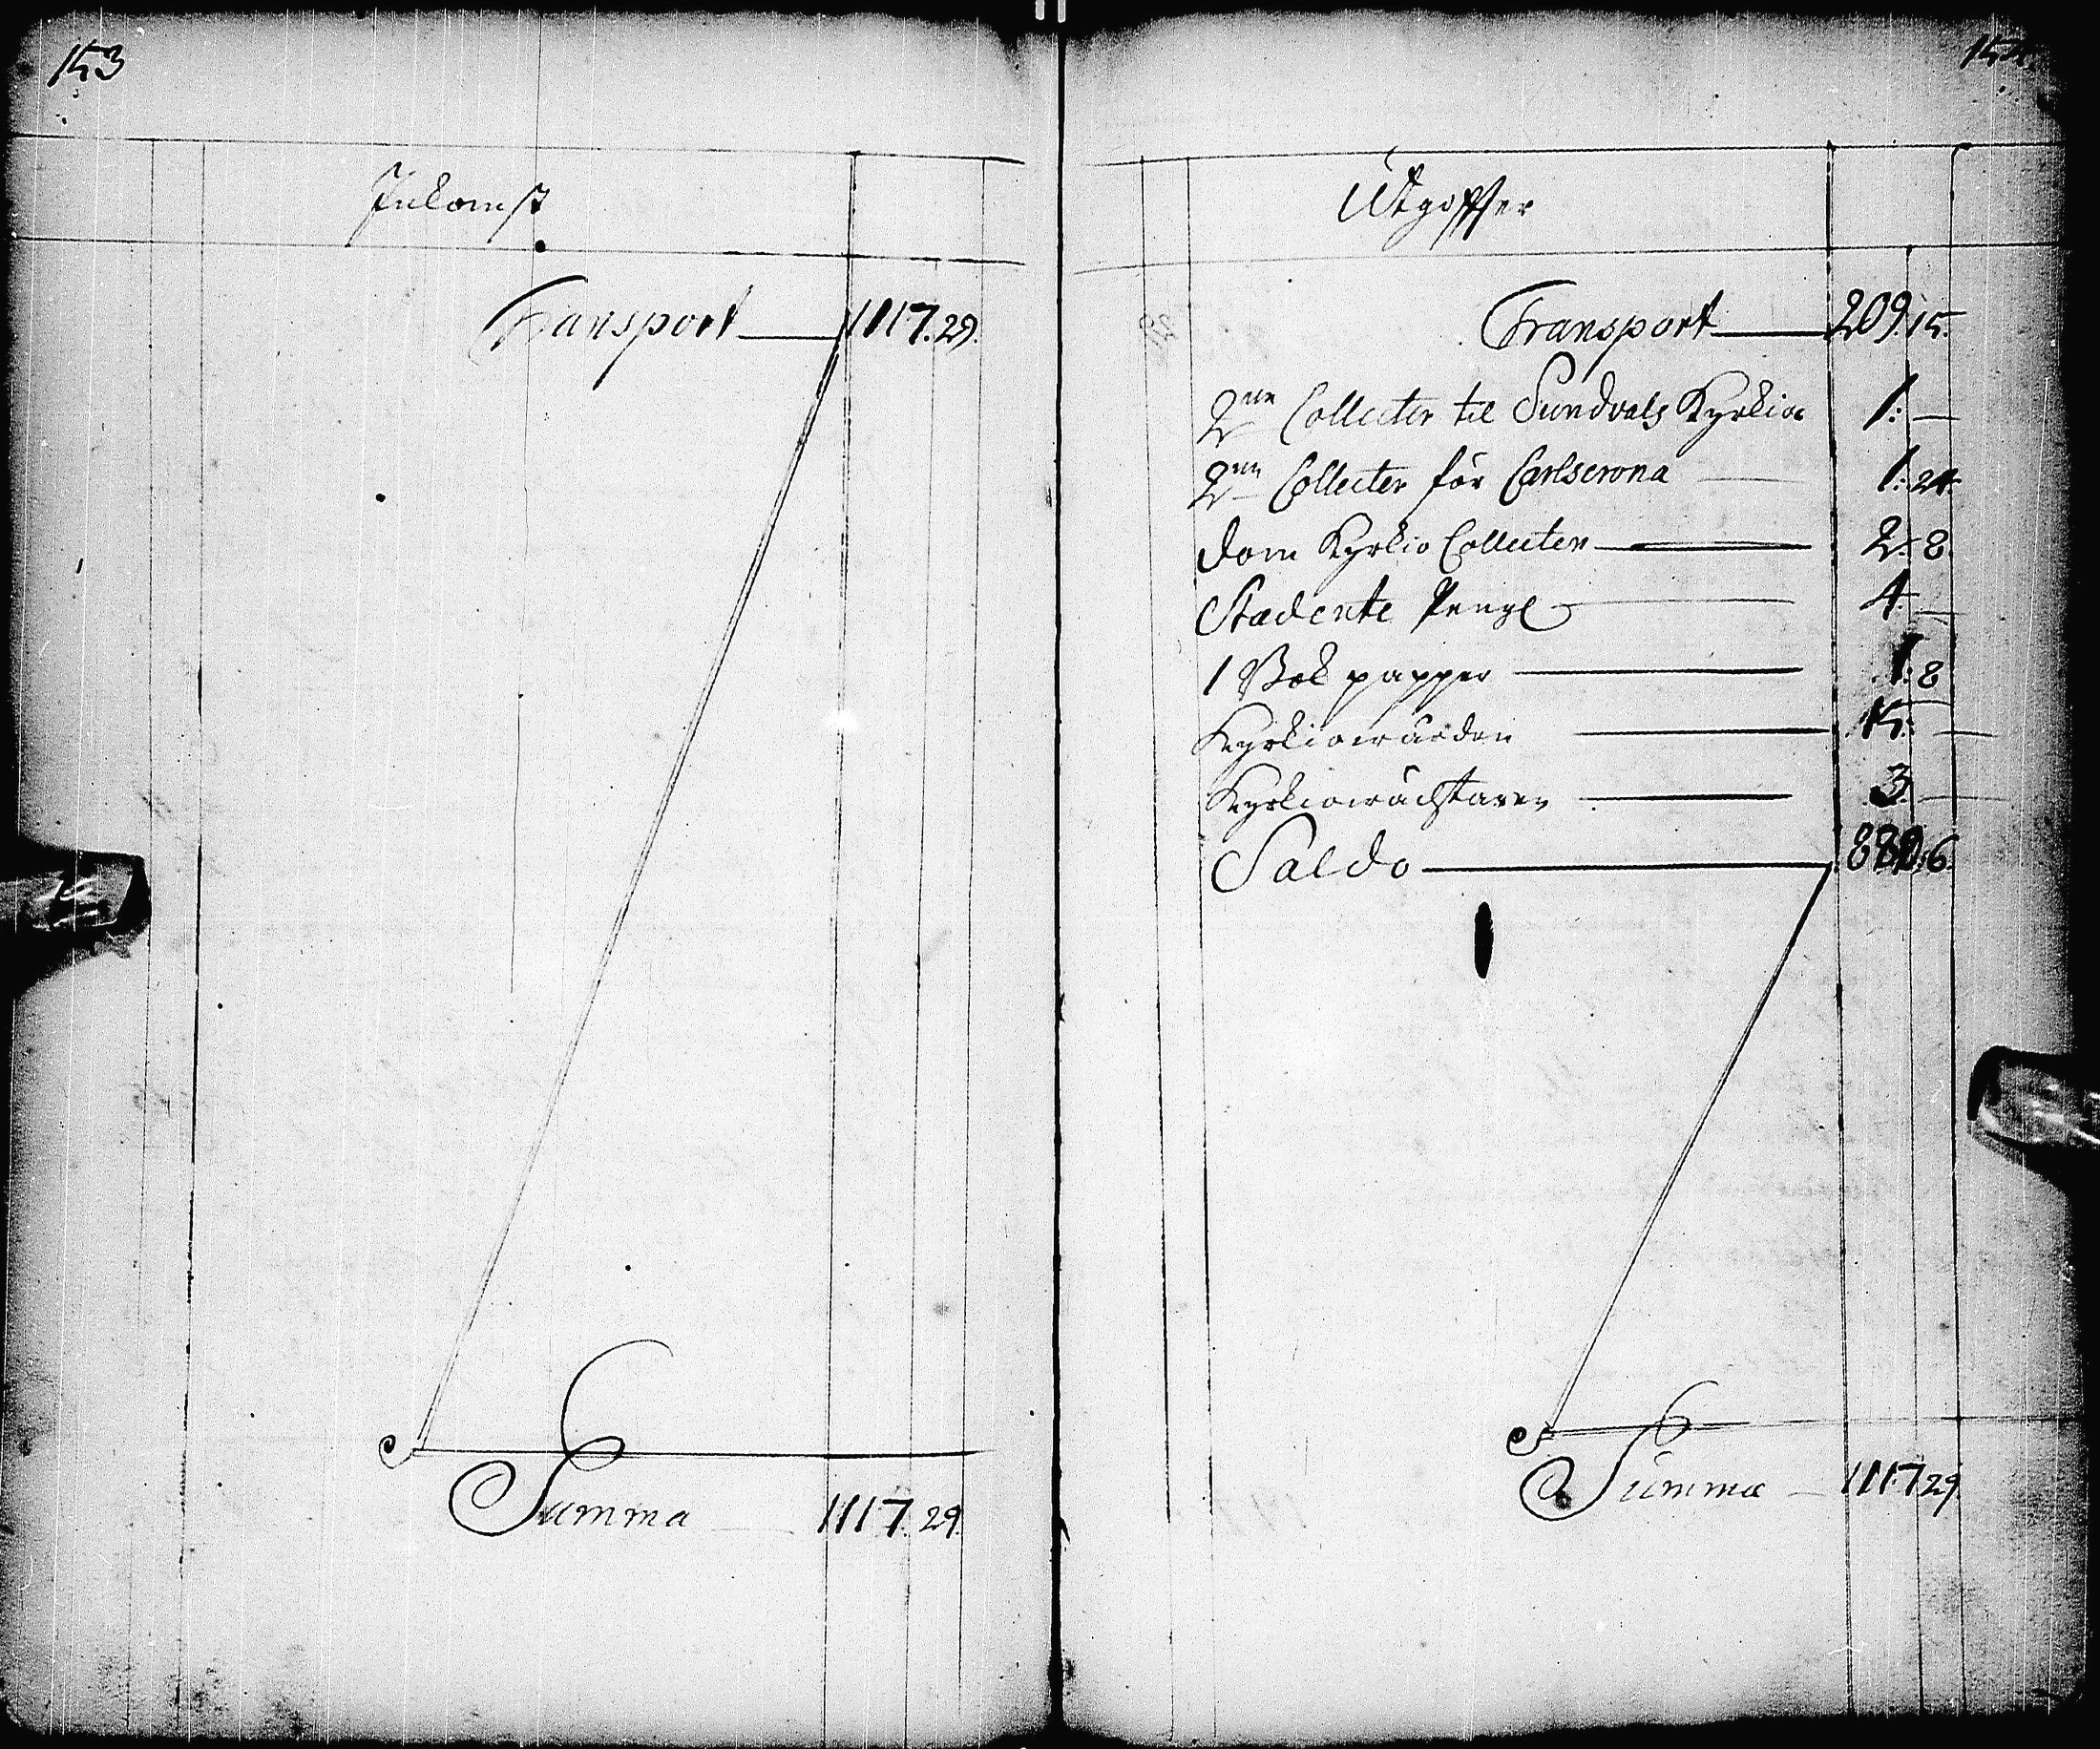 153
Inkomst
Transport 1117. 29.
Summa 1117. 29.
154.
Utgiffter
Transport 209. 15.
2ne Collecter til Sundvals Kyrkia 1: —
2ne Collecter för Carlscrona 1: 24.
Dom Kyrkio Collecten 2: 8.
Studente Penge 4. —
1 Bok papper 1: 8
Kyrkiowärden 15: —
Kyrkiowächtaren 3. —
Saldo 880: 6.
Summa 1117 29